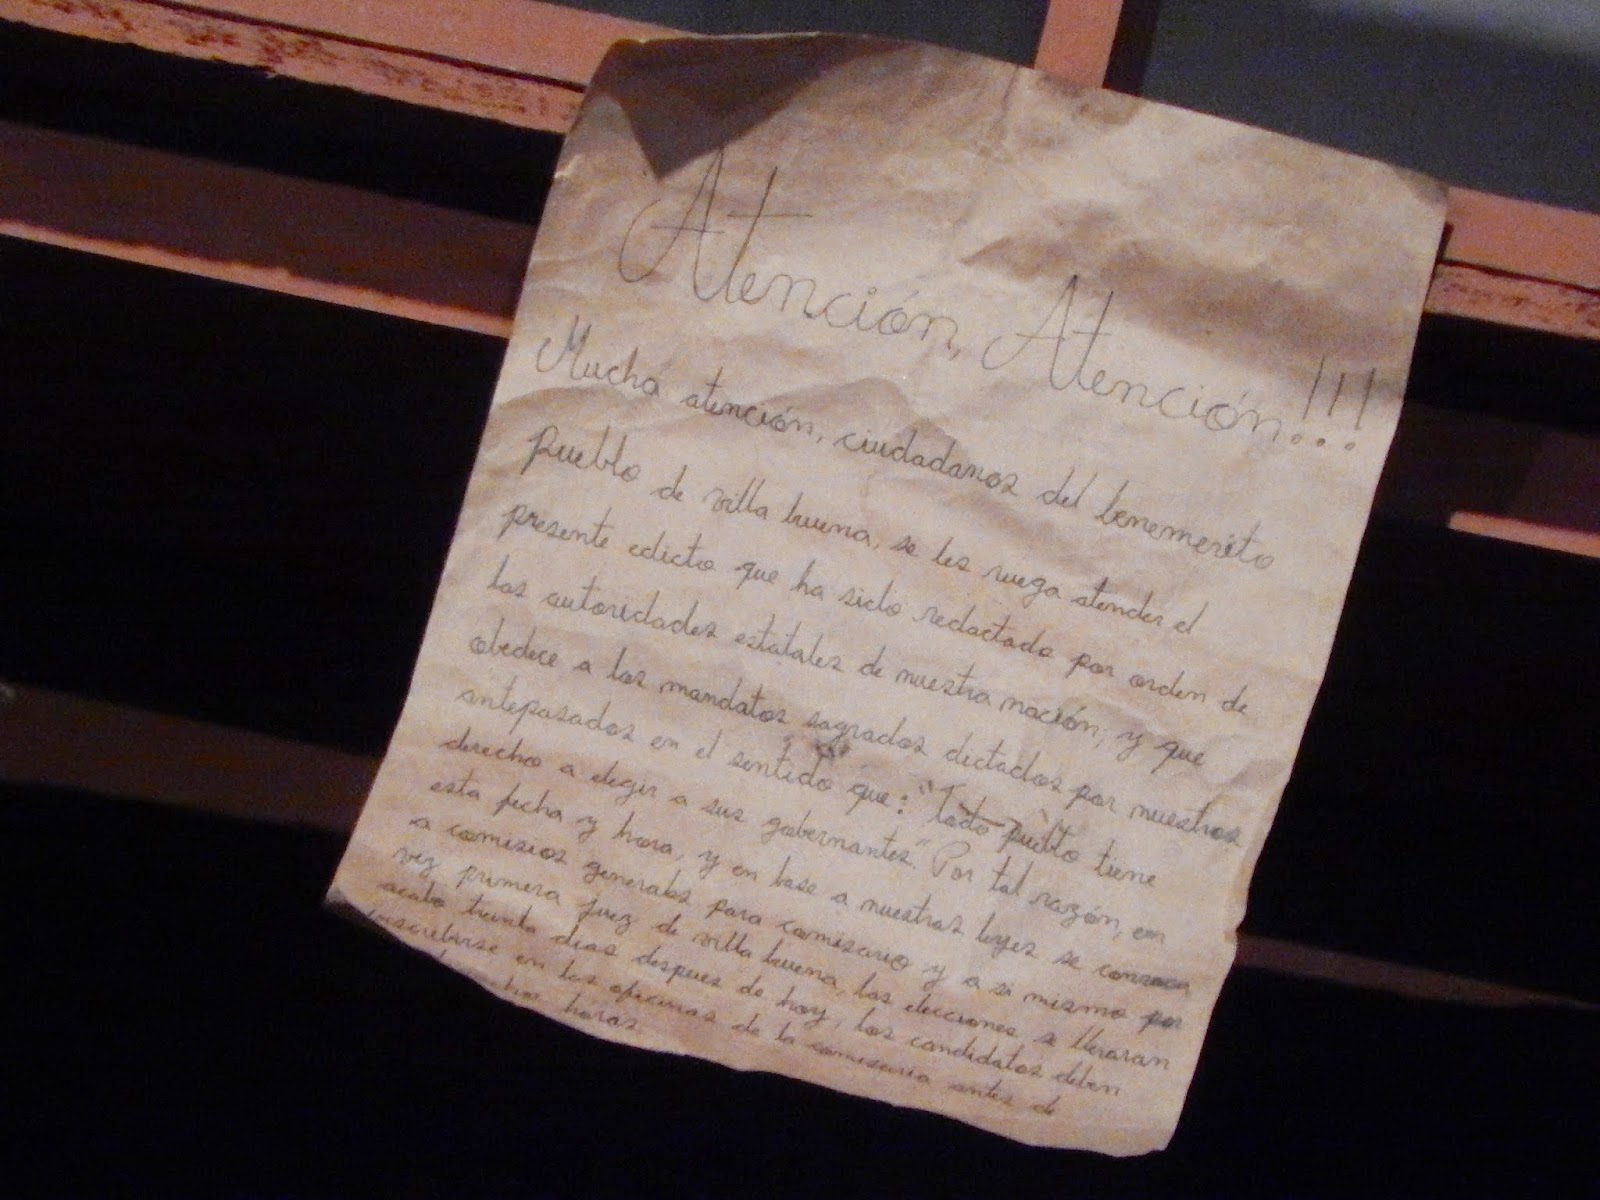 Atención, Atención!!!
Mucha atención, ciudadanos del benemeréto
pueblo de villa buena, se les ruega atender el
presente edicto que ha sido redactado por orden de
las autoridades estatales de nuestra nación; y que
obedece a los mandatos sagrados dictados por nuestros
antepasados en el sentido que: "Todo pueblo tiene
derecho a elegir a sus gobernantes". Por tal razón, en
esta fecha y hora, y en base a nuestras leyes se convoca
a comisios generales para comisario y a si mismo por
vez primera juez de villa buena, las elecciones, se llevaran
acabo treinta dias despues de hoy, los candidatos deben
inscribirse en las oficinas de la comisaria antes de
horas.